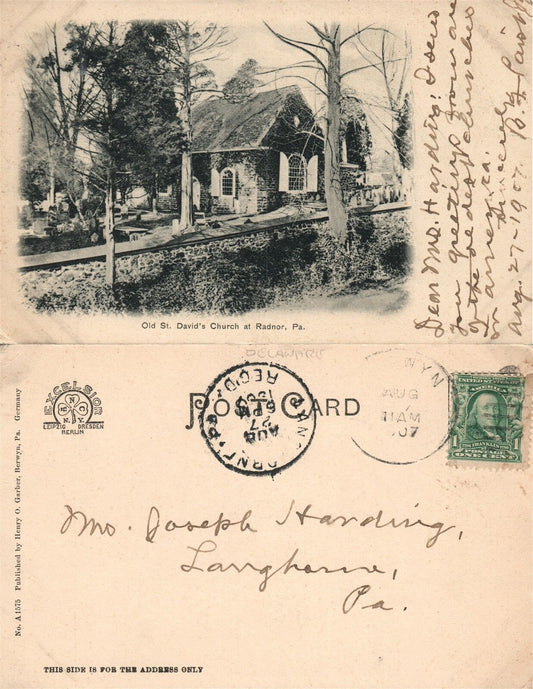 Old St. David's Church at Radnor, Pa.
Dear Mrs. Harding: I send
you greetings from one
of the oldest churches
in America.
Sincerely,
Aug. 27-1907.
DELAWARE
EXCELSIOR
N.Y.
LEIPZIG DRESDEN
BERLIN
POST CARD
REC'D.
AUG
27
6 PM
WYN
AUG
11 AM
07
UNITED STATES
FRANKLIN
POSTAGE
1 ONE CENT 1
Mrs. Joseph Harding,
Langhorne,
Pa.
No. A 1575 Published by Henry O. Garber, Berwyn, Pa. Germany
THIS SIDE IS FOR THE ADDRESS ONLY